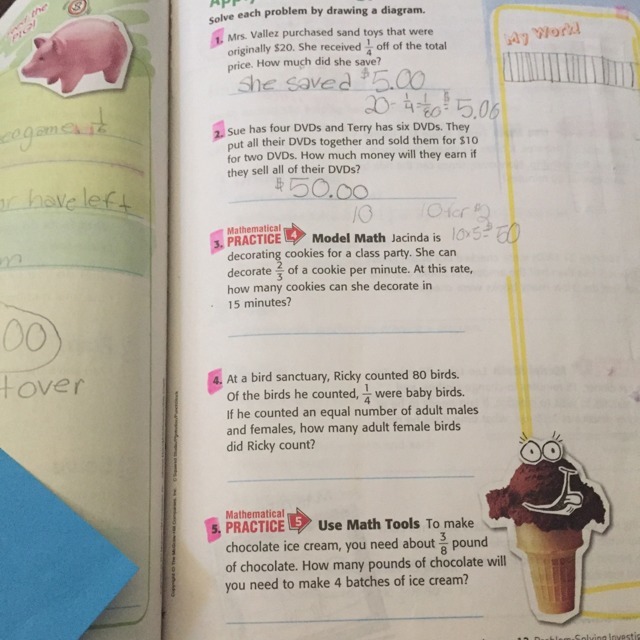 Solve each problem by drawing a diagram.
1. Mrs. Vallez purchased sand toys that were
originally $20. She received 1/4 off of the total
price. How much did she save?
she saved $5.00
2. Sue has four DVDs and Terry has six DVDs. They
put all their DVDs together and sold them for $10
for two DVDs. How much money will they earn if
they sell all of their DVDs?
$50.00
10
3. Mathematical
PRACTICE 4 Model Math Jacinda is
10x5=50
decorating cookies for a class party. She can
decorate 2/3 of a cookie per minute. At this rate,
how many cookies can she decorate in
15 minutes?
4. At a bird sanctuary, Ricky counted 80 birds.
Of the birds he counted, 1/4 were baby birds.
If he counted an equal number of adult males
and females, how many adult female birds
did Ricky count?
5. Mathematical
PRACTICE 5 Use Math Tools To make
chocolate ice cream, you need about 3/8 pound
of chocolate. How many pounds of chocolate will
you need to make 4 batches of ice cream?
My Work!
have left